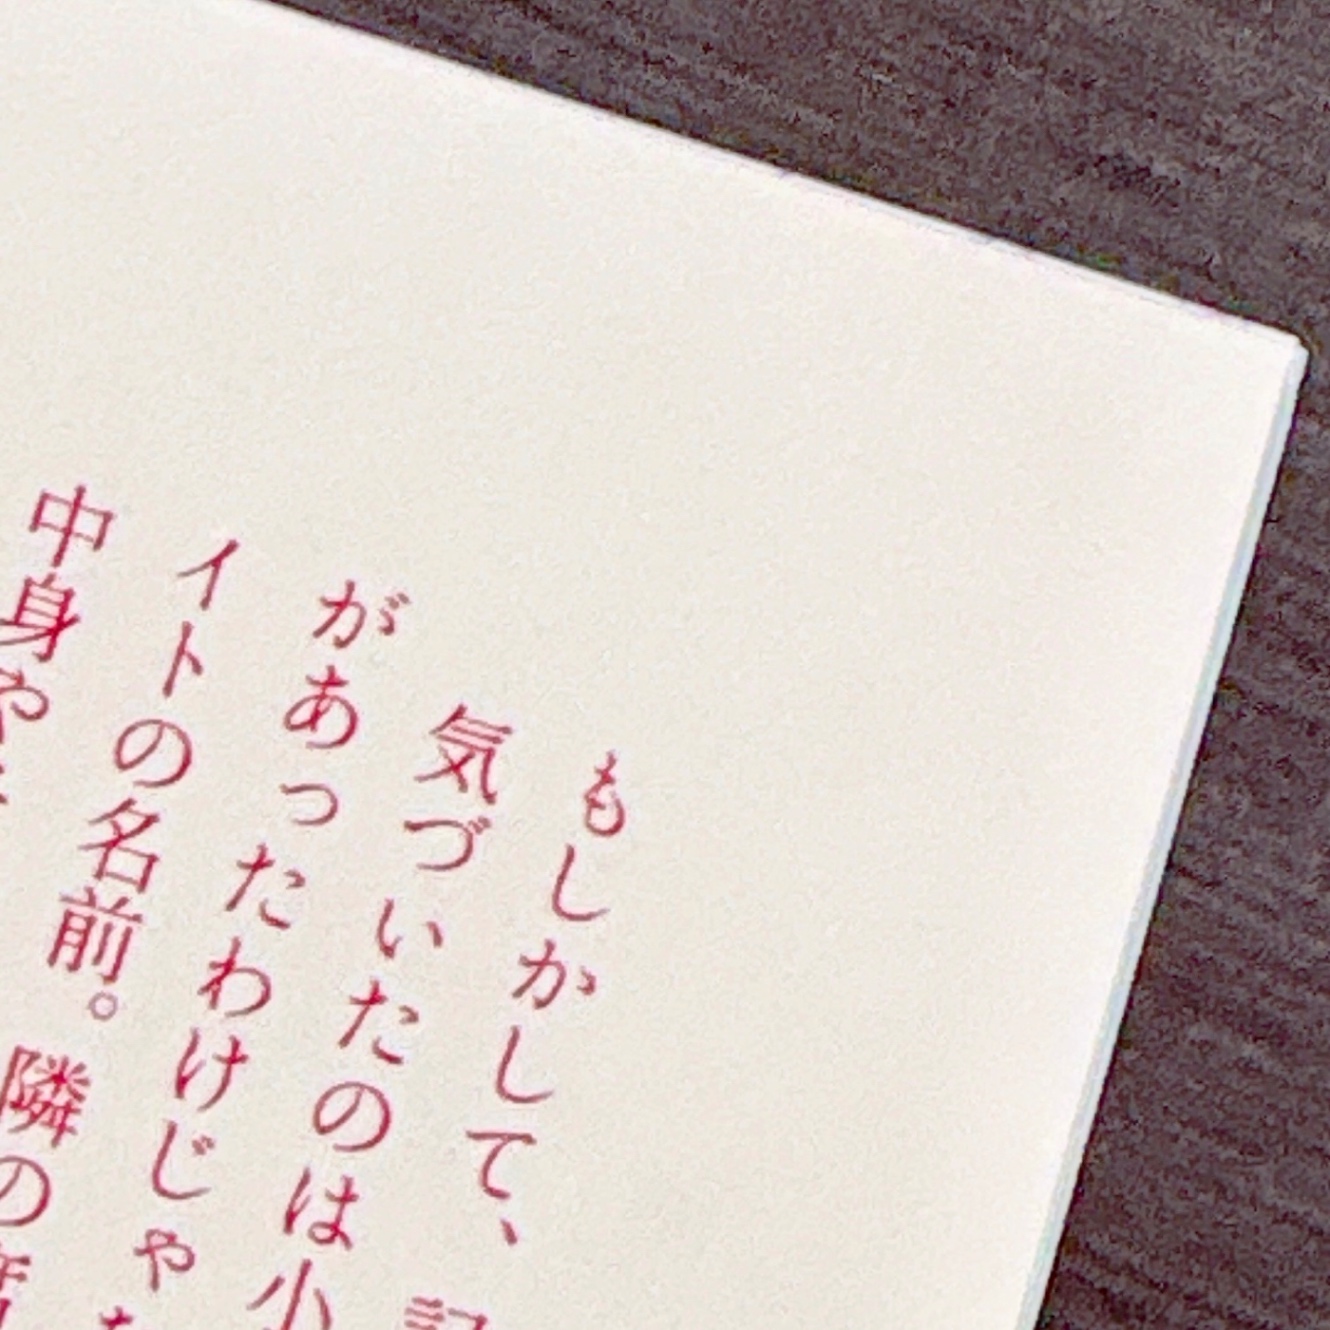 もしかして、記
気づいたのは小
があったわけじゃな
イトの名前。隣の席
中身や